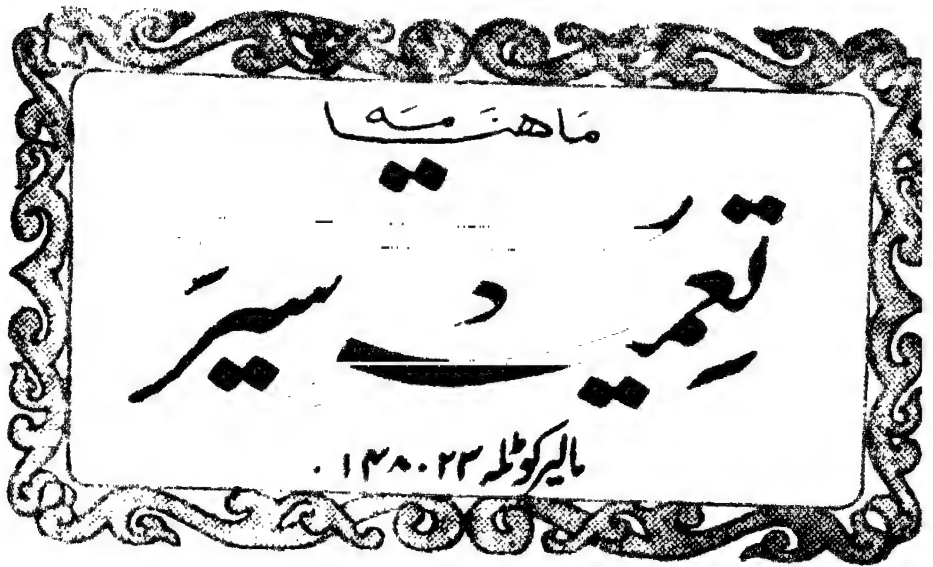 ماهنامہ
تعمیرِ سیرَت
مالیرکوٹلہ ۱۴۸۰۲۳